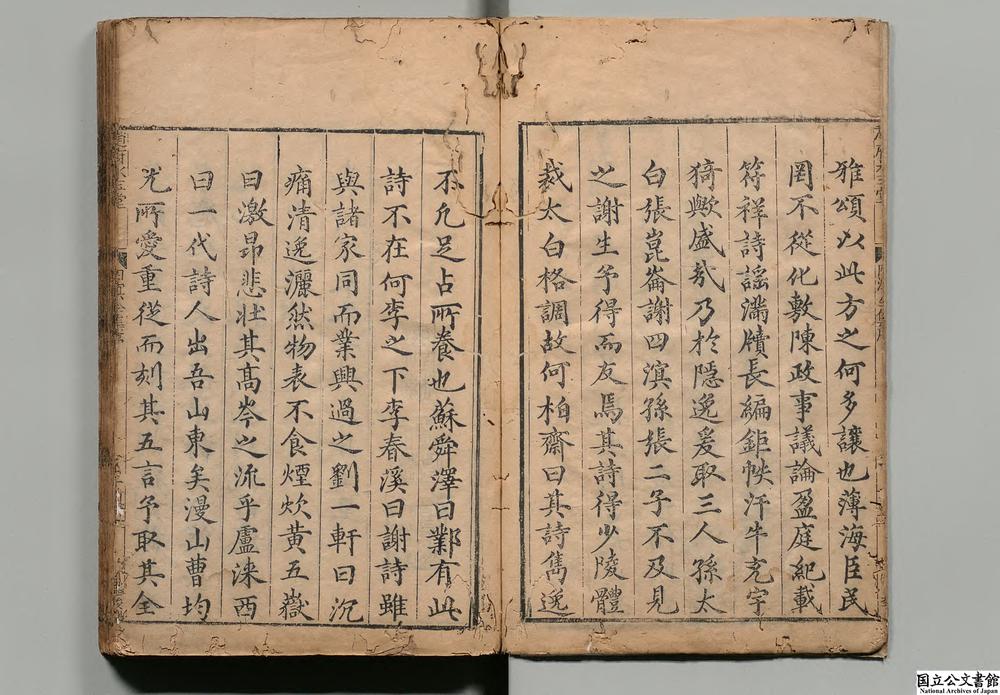 雅頌以此方之何多讓也薄海臣民
罔不從化敷陳政事議論盈庭紀載
符祥詩謡滿牘長編鉅帙汗牛充宇
猗歟盛哉乃於隠逸爰取三人孫太
白張崑崙謝四溟孫張二子不及見
之謝生予得而友焉其詩得少陵體
裁太白格調故何柏齋曰其詩雋逸
不凢足占所養也蘇舜澤曰鄴有此
詩不在何李之下李春溪曰謝詩雖
與諸家同而業興過之劉一軒曰沉
痛清逸灑然物表不食煙炊黄五嶽
曰激昻悲壯其髙岑之流乎盧涞西
曰一代詩人出吾山東矣漫山曹均
尤所愛重從而刻其五言予取其全
国立公文書館
National Archives of Japan